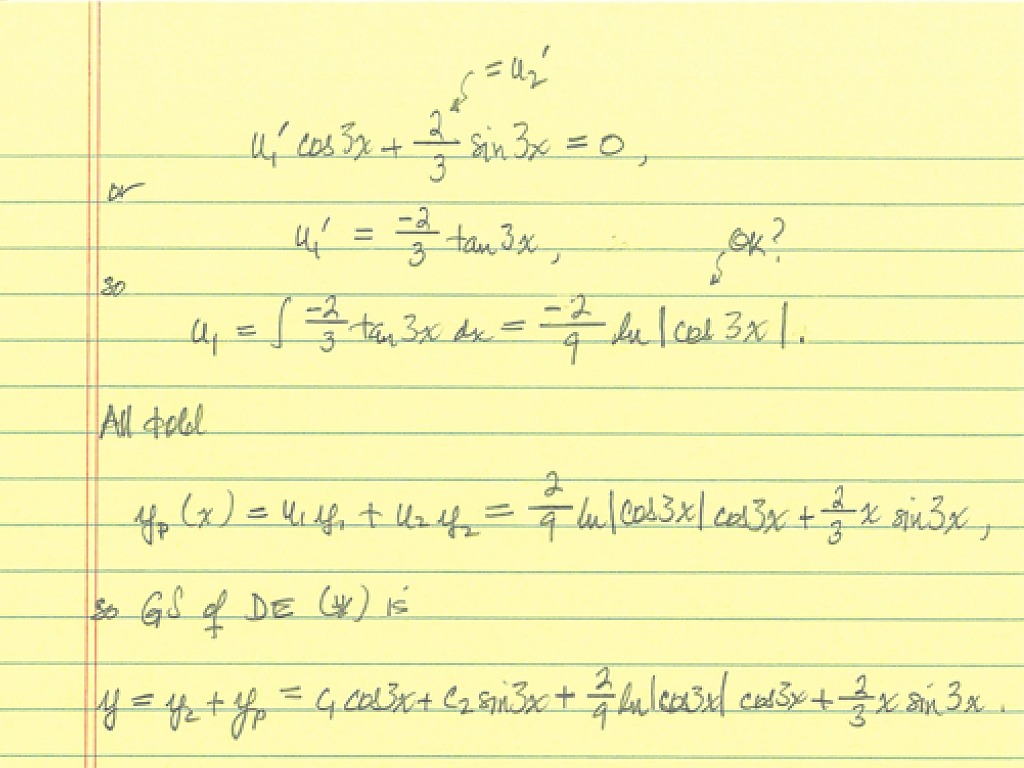 = u₂′
u₁′ cos3x + 2/3 sin3x = 0,
or
u₁′ = -2/3 tan3x,
OK?
so
u₁ = ∫ -2/3 tan3x dx = -2/9 ln|cos3x|.
All told
yₚ(x) = u₁y₁ + u₂y₂ = 2/9 ln|cos3x| cos3x + 2/3 x sin3x,
so GS of DE (*) is
y = y₂ + yₚ = c₁cos3x + c₂sin3x + 2/9 ln|cos3x| cos3x + 2/3 x sin3x.